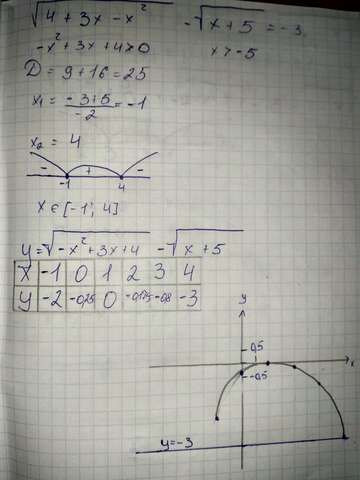 √4 + 3x - x² - √x + 5 = -3
-x² + 3x + 4 > 0 x > -5
D = 9 + 16 = 25
x₁ = -3+5/-2 = -1
x₂ = 4
- + -
-1 4
x ∈ [-1; 4]
y = √-x² + 3x + 4 - √x + 5
x -1 0 1 2 3 4
y -2 -0,25 0 -0,175 -0,8 -3
y
0,5
x
-0,5
y = -3